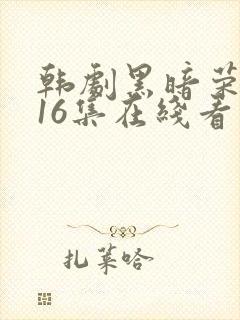 韩剧黑暗荣
16集在线看
扎莱哈